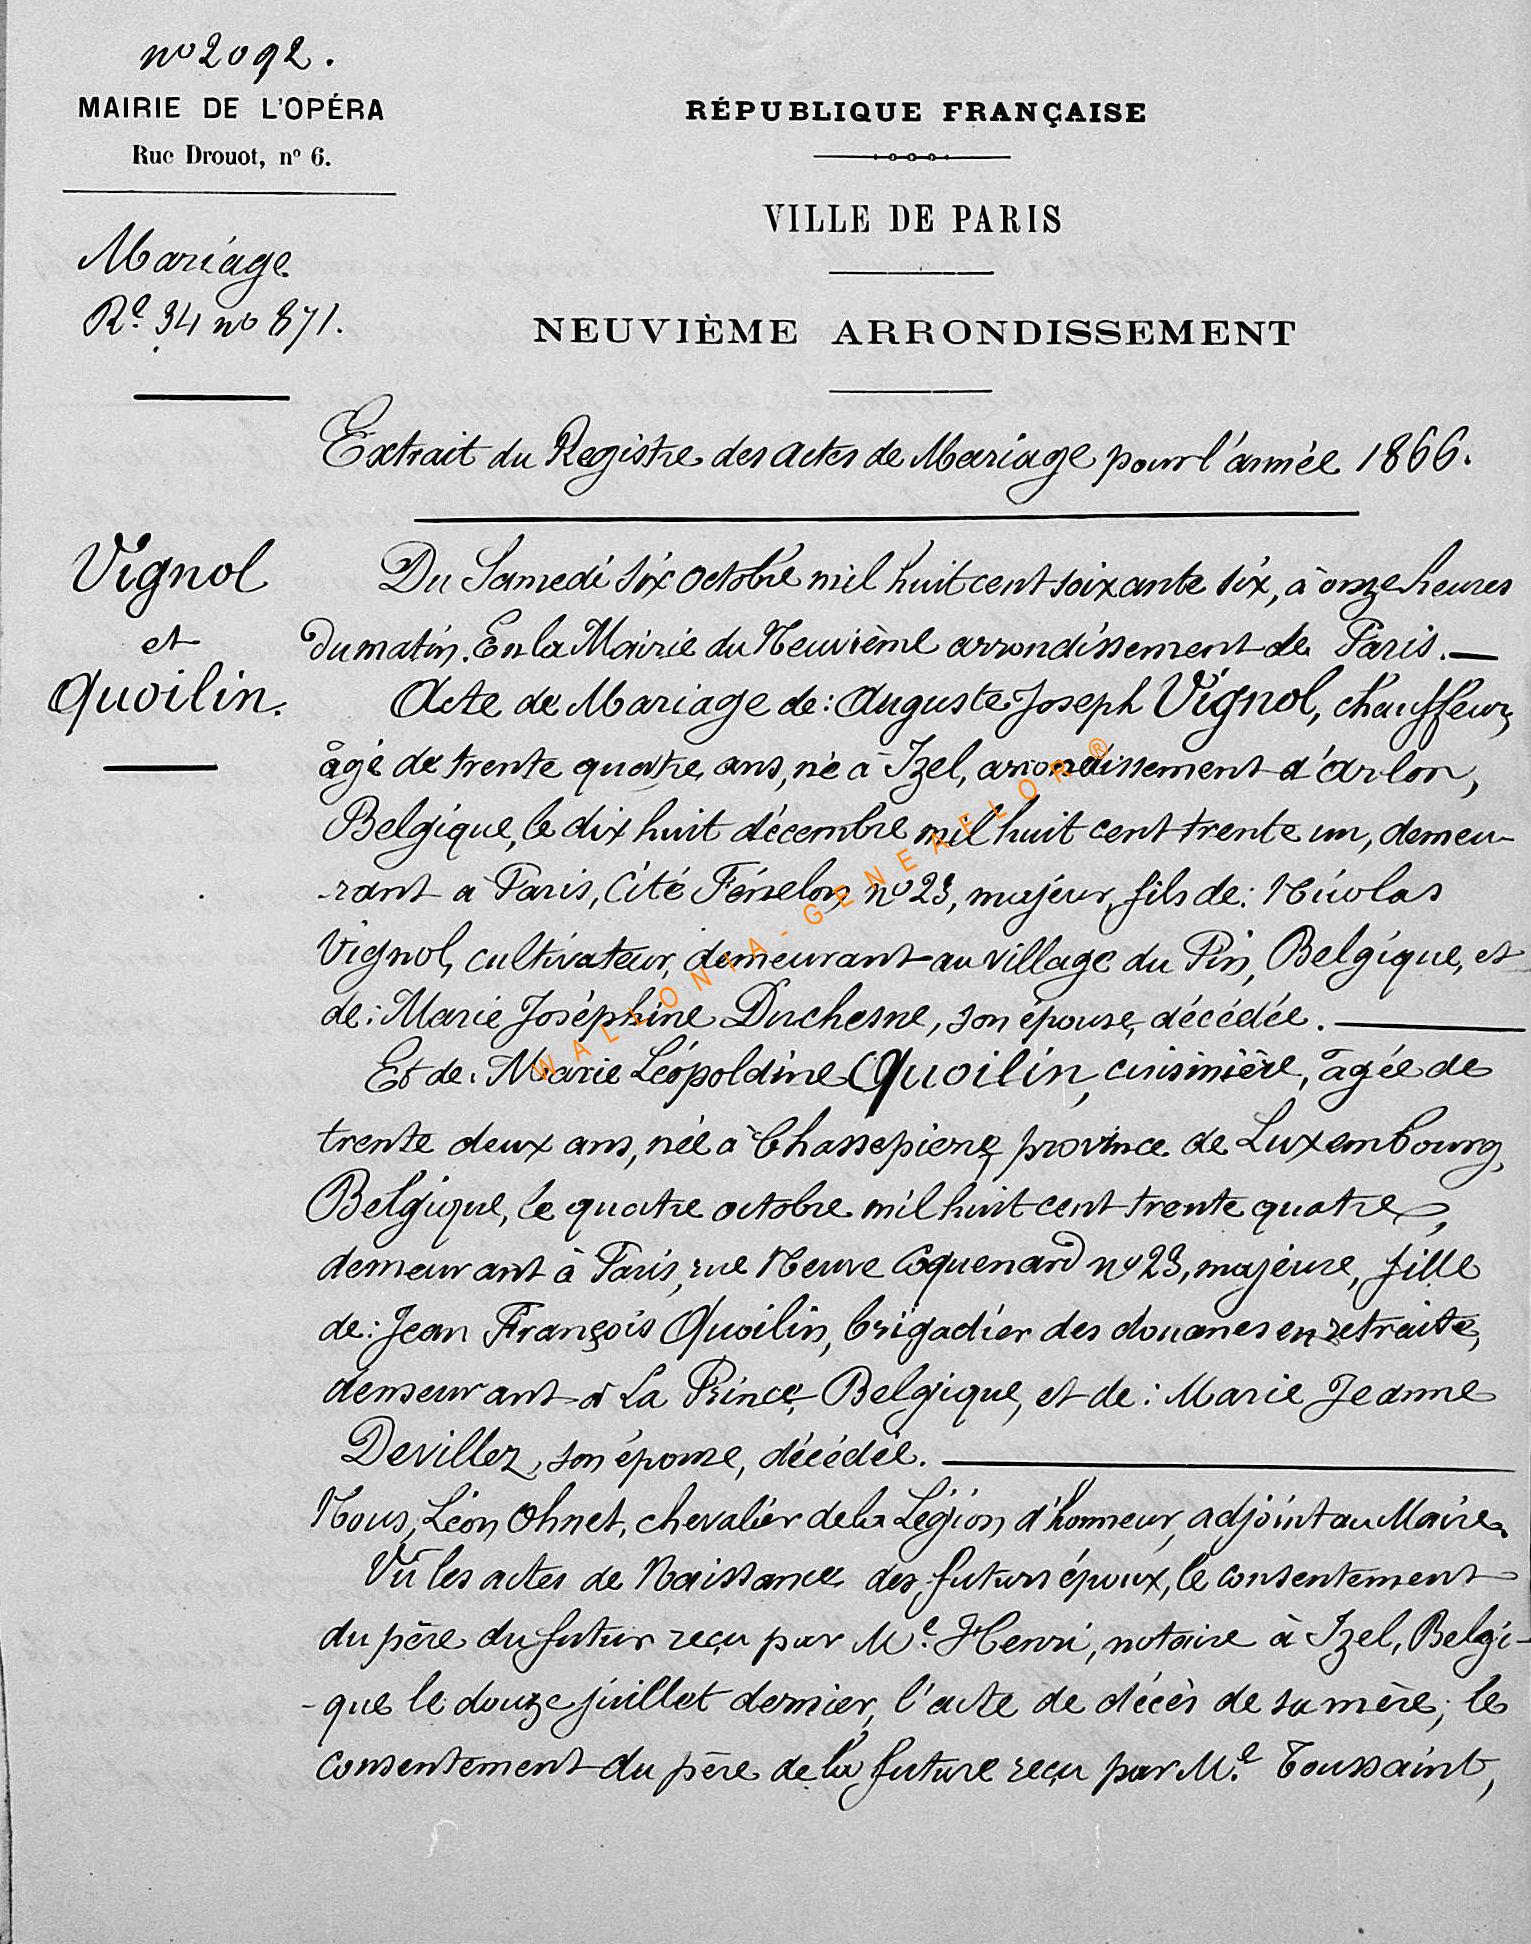 nº 2092.
MAIRIE DE L'OPÉRA
Rue Drouot, nº 6.
Mariage
Re. 34 nº 871.
RÉPUBLIQUE FRANÇAISE
VILLE DE PARIS
NEUVIÈME ARRONDISSEMENT
Extrait du Registre des actes de Mariage pour l'année 1866.
Vignol
et
Quoilin.
Du Samedi six octobre mil huit cent soixante six, à onze heures
du matin. En la Mairie du Neuvième arrondissement de Paris.
Acte de Mariage de: Auguste Joseph Vignol, chauffeur,
âgé de trente quatre ans, né à Izel, arrondissement d'Arlon,
Belgique, le dix huit décembre mil huit cent trente un, demeu-
-rant à Paris, Cité Fénelon, nº 23, majeur, fils de: Nicolas
Vignol, cultivateur, demeurant au village du Pin, Belgique, et
de: Marie Joséphine Duchesne, son épouse, décédée.
Et de: Marie Léopoldine Quoilin, cuisinière, âgée de
trente deux ans, née à Chassepierre, province de Luxembourg,
Belgique, le quatre octobre mil huit cent trente quatre,
demeurant à Paris, rue Neuve Coquenard nº 23, majeure, fille
de: Jean François Quoilin, brigadier des douanes en retraite,
demeurant à La Prince, Belgique, et de: Marie Jeanne
Devillez, son épouse, décédée.
Nous, Léon Ohnet, chevalier de la Légion d'honneur, adjoint au Maire.
Vu les actes de Naissance des futurs époux, le consentement
du père du futur reçu par Me. Henri, notaire à Izel, Belgi-
-que le douze juillet dernier, l'acte de décès de sa mère; le
consentement du père de la future reçu par Me. Toussaint,
WALLONIA-GENEAFLOR®